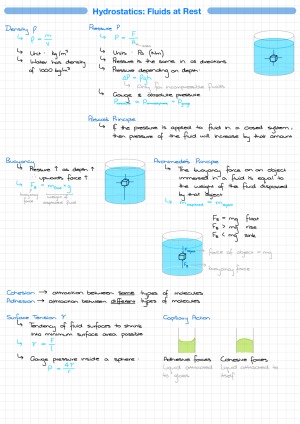 Hydrostatics: Fluids at Rest
Density ρ
↳ ρ = m/V
↳ Unit: kg/m³
↳ Water has density
of 1000 kg/m³
Pressure P
↳ P = F/A
↳ Units: Pa (N/m)
↳ Pressure is the same in all directions
↳ Pressure depending on depth:
ΔP = ρgh
↳ Only for incompressible fluids
↳ Gauge & absolute pressure
Pascal's Principle
↳ If the pressure is applied to fluid in a closed system,
then pressure of the fluid will increase by that amount
Buoyancy
↳ Pressure ↑ as depth ↑
upwards force ↑
buoyancy
force
weight of
displaced fluid
Archimedes's Principle
↳ The buoyancy force on an object
immersed in a fluid is equal to
the weight of the fluid displaced
by that object
F_B = mg float
F_B > mg rise
F_B < mg sink
force of object = mg
buoyancy force
Cohesion → attraction between same types of molecules
Adhesion → attraction between different types of molecules
Surface Tension γ
↳ Tendency of fluid surfaces to shrink
into minimum surface area possible
↳ γ = F/L
↳ Gauge pressure inside a sphere:
P = 2γ/r
Capillary Action
Adhesive forces
Liquid attracted
to glass
Cohesive forces
Liquid attracted to
itself